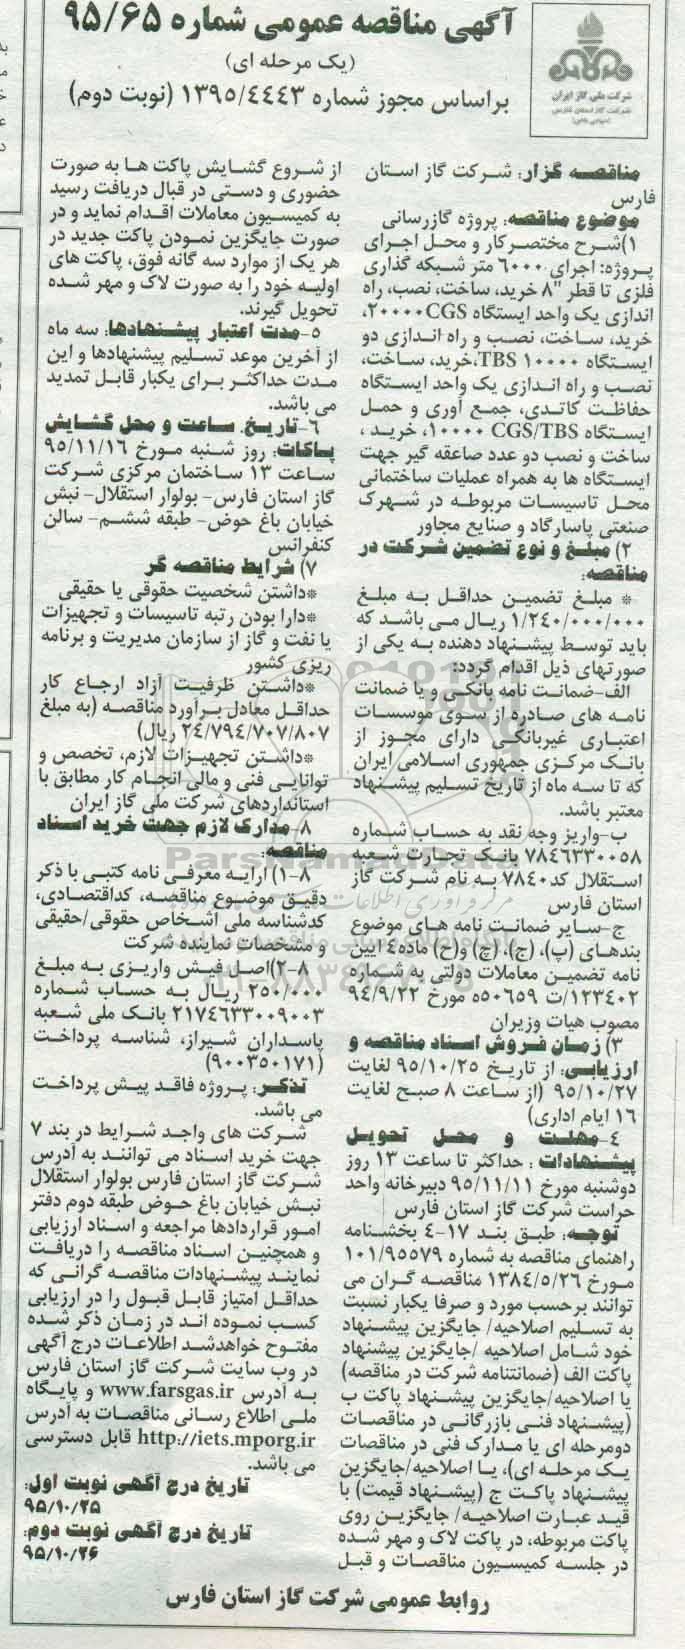 آگهی مناقصه عمومی شماره ۹۵/۶۵
(یک مرحله ای)
براساس مجوز شماره ۱۳۹۵/۴۴۴۳ (نوبت دوم)
شرکت ملی گاز ایران
شرکت گاز استان فارس
(سهامی خاص)
مناقصه گزار: شرکت گاز استان
فارس
موضوع مناقصه: پروژه گازرسانی
۱)شرح مختصرکار و محل اجرای
پروژه: اجرای ۶۰۰۰ متر شبکه گذاری
فلزی تا قطر "۸ خرید، ساخت، نصب، راه
اندازی یک واحد ایستگاه ۲۰۰۰۰CGS،
خرید، ساخت، نصب و راه اندازی دو
ایستگاه TBS ۱۰۰۰۰،خرید، ساخت،
نصب و راه اندازی یک واحد ایستگاه
حفاظت کاتدی، جمع آوری و حمل
ایستگاه CGS/TBS ۱۰۰۰۰، خرید ،
ساخت و نصب دو عدد صاعقه گیر جهت
ایستگاه ها به همراه عملیات ساختمانی
محل تاسیسات مربوطه در شهرک
صنعتی پاسارگاد و صنایع مجاور
۲) مبلغ و نوع تضمین شرکت در
مناقصه:
* مبلغ تضمین حداقل به مبلغ
۱/۲۴۰/۰۰۰/۰۰۰ ریال می باشد که
باید توسط پیشنهاد دهنده به یکی از
صورتهای ذیل اقدام گردد:
الف-ضمانت نامه بانکی و یا ضمانت
نامه های صادره از سوی موسسات
اعتباری غیربانکی دارای مجوز از
بانک مرکزی جمهوری اسلامی ایران
که تا سه ماه از تاریخ تسلیم پیشنهاد
معتبر باشد.
ب-واریز وجه نقد به حساب شماره
۷۸۴۶۳۳۰۰۵۸ بانک تجارت شعبه
استقلال کد۷۸۴۰ به نام شرکت گاز
استان فارس
ج-سایر ضمانت نامه های موضوع
بندهای (پ)، (ج)، (چ) و(ح) ماده۴ آیین
نامه تضمین معاملات دولتی به شماره
۱۲۳۴۰۲/ت ۵۰۶۵۹ه مورخ ۹۴/۹/۲۲
مصوب هیات وزیران
۳) زمان فروش اسناد مناقصه و
ارزیابی: از تاریخ ۹۵/۱۰/۲۵ لغایت
۹۵/۱۰/۲۷ (از ساعت ۸ صبح لغایت
۱۶ ایام اداری)
۴-مهلت و محل تحویل
پیشنهادات : حداکثر تا ساعت ۱۳ روز
دوشنبه مورخ ۹۵/۱۱/۱۱ دبیرخانه واحد
حراست شرکت گاز استان فارس
توجه: طبق بند ۱۷-۴ بخشنامه
راهنمای مناقصه به شماره ۱۰۱/۹۵۵۷۹
مورخ ۱۳۸۴/۵/۲۶ مناقصه گران می
توانند برحسب مورد و صرفا یکبار نسبت
به تسلیم اصلاحیه/ جایگزین پیشنهاد
خود شامل اصلاحیه /جایگزین پیشنهاد
پاکت الف (ضمانتنامه شرکت در مناقصه)
یا اصلاحیه/جایگزین پیشنهاد پاکت ب
(پیشنهاد فنی بازرگانی در مناقصات
دومرحله ای یا مدارک فنی در مناقصات
یک مرحله ای)، یا اصلاحیه/جایگزین
پیشنهاد پاکت ج (پیشنهاد قیمت) با
قید عبارت اصلاحیه/ جایگزین روی
پاکت مربوطه، در پاکت لاک و مهر شده
در جلسه کمیسیون مناقصات و قبل
از شروع گشایش پاکت ها به صورت
حضوری و دستی در قبال دریافت رسید
به کمیسیون معاملات اقدام نماید و در
صورت جایگزین نمودن پاکت جدید در
هر یک از موارد سه گانه فوق، پاکت های
اولیه خود را به صورت لاک و مهر شده
تحویل گیرند.
۵-مدت اعتبار پیشنهادها: سه ماه
از آخرین موعد تسلیم پیشنهادها و این
مدت حداکثر برای یکبار قابل تمدید
می باشد.
۶-تاریخ، ساعت و محل گشایش
پاکات: روز شنبه مورخ ۹۵/۱۱/۱۶
ساعت ۱۳ ساختمان مرکزی شرکت
گاز استان فارس- بولوار استقلال- نبش
خیابان باغ حوض- طبقه ششم- سالن
کنفرانس
۷) شرایط مناقصه گر
*داشتن شخصیت حقوقی یا حقیقی
*دارا بودن رتبه تاسیسات و تجهیزات
یا نفت و گاز از سازمان مدیریت و برنامه
ریزی کشور
*داشتن ظرفیت آزاد ارجاع کار
حداقل معادل برآورد مناقصه (به مبلغ
۲۴/۷۹۴/۷۰۷/۸۰۷ ریال)
*داشتن تجهیزات لازم، تخصص و
توانایی فنی و مالی انجام کار مطابق با
استانداردهای شرکت ملی گاز ایران
۸- مدارک لازم جهت خرید اسناد
مناقصه:
۸-۱) ارایه معرفی نامه کتبی با ذکر
دقیق موضوع مناقصه، کداقتصادی،
کدشناسه ملی اشخاص حقوقی/حقیقی
و مشخصات نماینده شرکت
۸-۲)اصل فیش واریزی به مبلغ
۲۵۰/۰۰۰ ریال به حساب شماره
۲۱۷۴۶۳۳۰۰۹۰۰۳ بانک ملی شعبه
پاسداران شیراز، شناسه پرداخت
(۹۰۰۳۵۰۱۷۱)
تذکر: پروژه فاقد پیش پرداخت
می باشد.
شرکت های واجد شرایط در بند ۷
جهت خرید اسناد می توانند به آدرس
شرکت گاز استان فارس بولوار استقلال
نبش خیابان باغ حوض طبقه دوم دفتر
امور قراردادها مراجعه و اسناد ارزیابی
و همچنین اسناد مناقصه را دریافت
نمایند پیشنهادات مناقصه گرانی که
حداقل امتیاز قابل قبول را در ارزیابی
کسب نموده اند در زمان ذکر شده
مفتوح خواهدشد اطلاعات درج آگهی
در وب سایت شرکت گاز استان فارس
به آدرس www.farsgas.ir و پایگاه
ملی اطلاع رسانی مناقصات به آدرس
http://iets.mporg.ir قابل دسترسی
می باشد.
تاریخ درج آگهی نوبت اول:
۹۵/۱۰/۲۵
تاریخ درج آگهی نوبت دوم:
۹۵/۱۰/۲۶
روابط عمومی شرکت گاز استان فارس
ParsNamadData